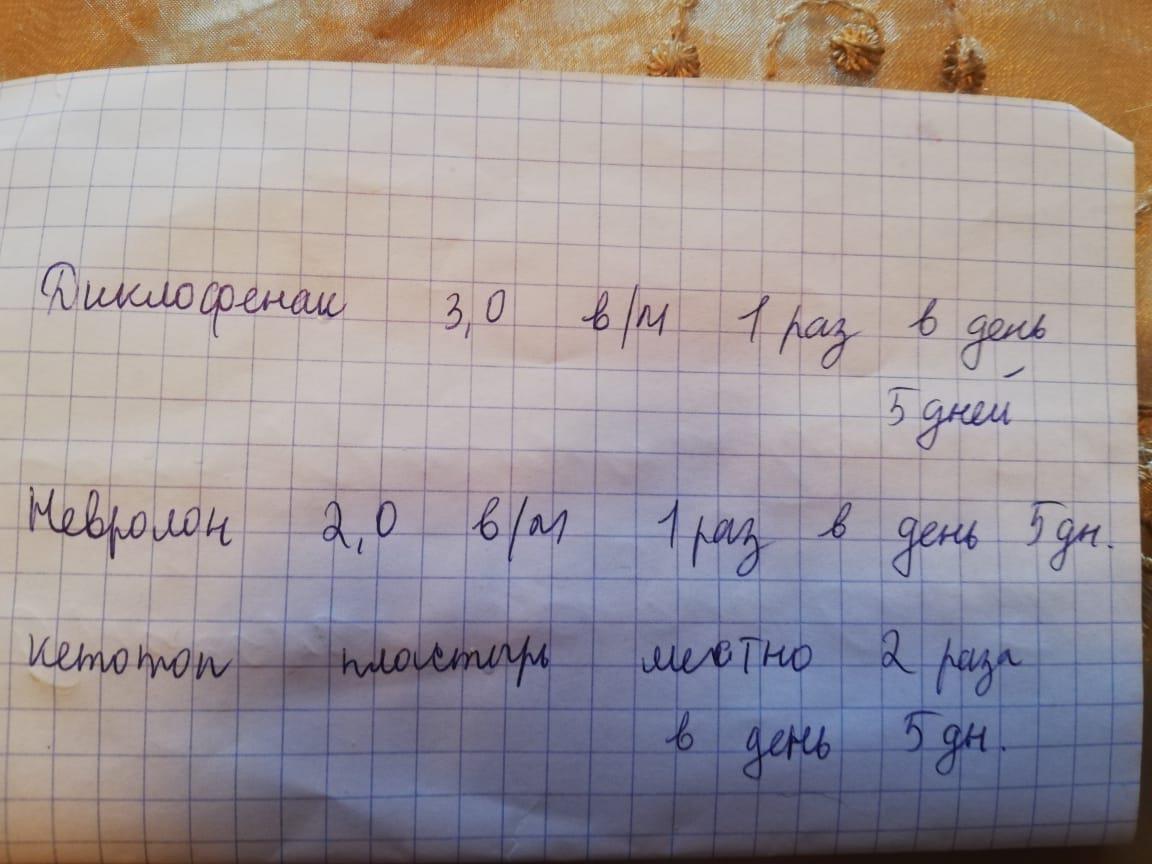 Диклофенак 3,0 в/м 1 раз в день
5 дней
Невролон 2,0 в/м 1 раз в день 5 дн.
кетотоп пластырь местно 2 раза
в день 5 дн.